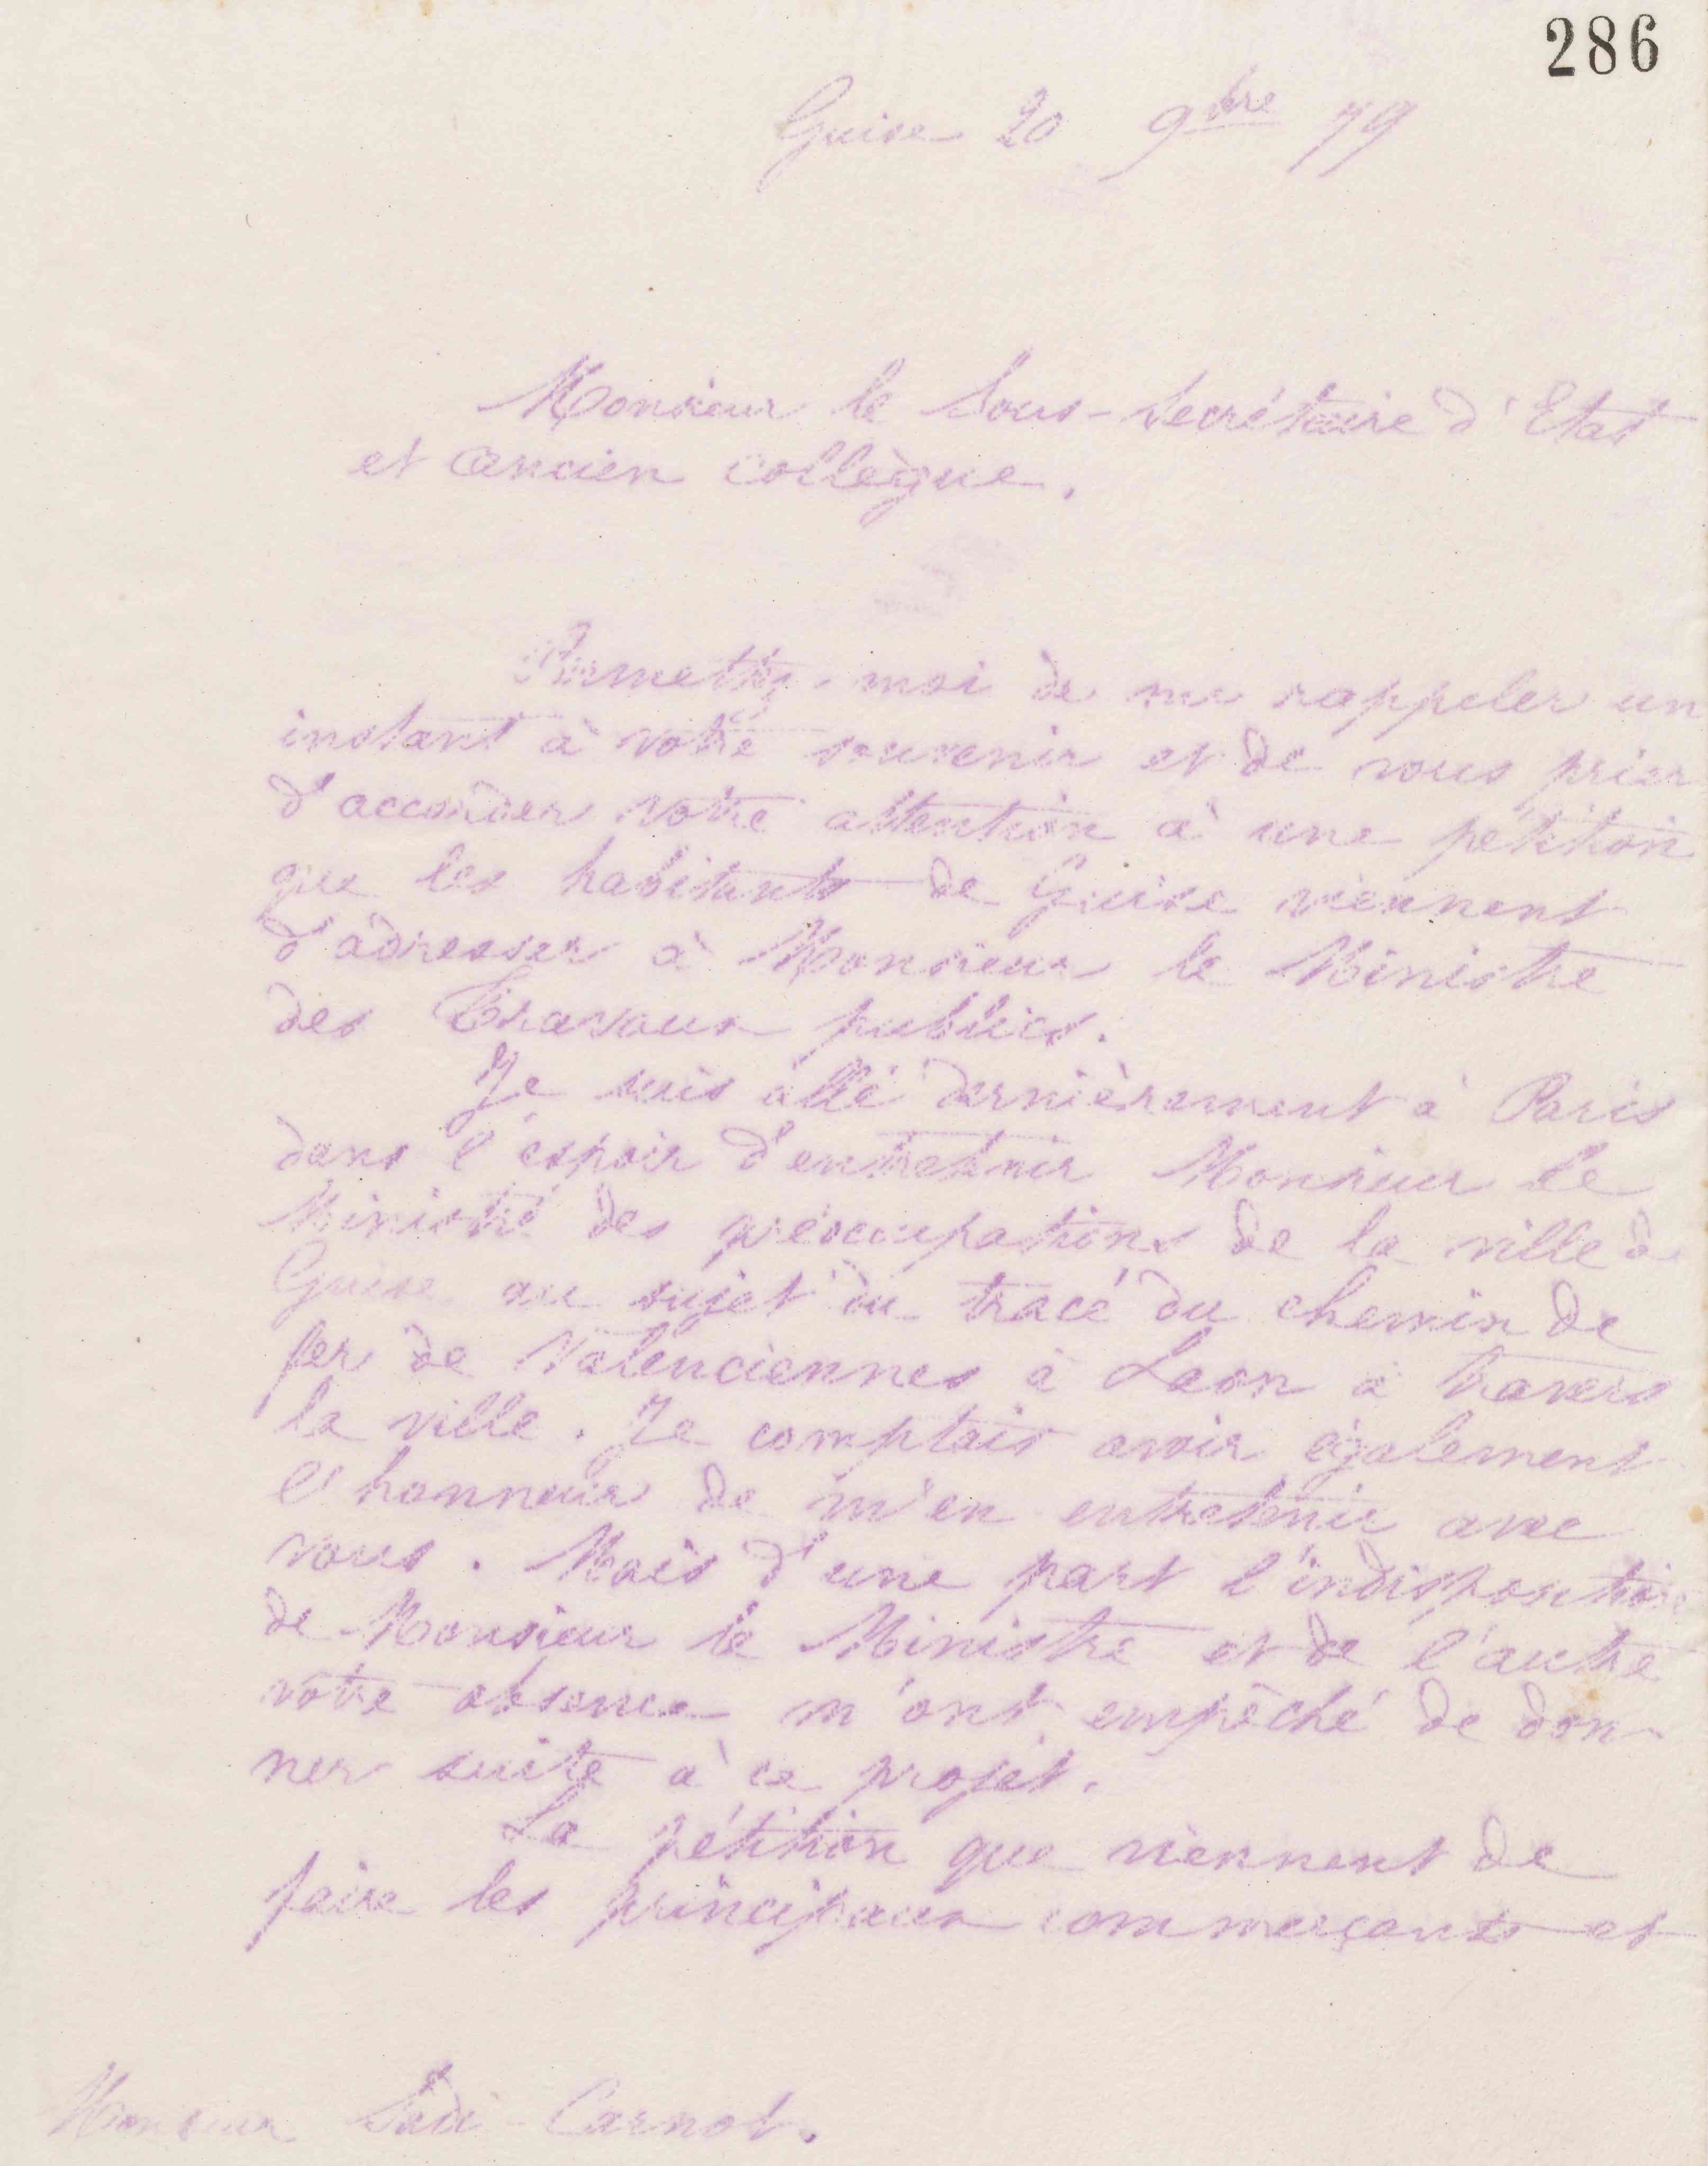 286
Guise 20 9bre 79
Monsieur le Sous-Secrétaire d'Etat
et ancien collègue.
Permettez-moi de me rappeler un
instant à votre souvenir et de vous prier
d'accorder votre attention à une pétition
que les habitants de Guise viennent
d'adresser à Monsieur le Ministre
des Travaux publics.
Je suis allé dernièrement à Paris
dans l'espoir d'entretenir Monsieur le
Ministre des préoccupations de la ville de
Guise au sujet du tracé du chemin de
fer de Valenciennes à Laon à travers
la ville. Je comptais avoir également
l'honneur de m'en entretenir avec
vous. Mais d'une part l'indisposition
de Monsieur le Ministre et de l'autre
votre absence m'ont empêché de don-
ner suite à ce projet.
La pétition que viennent de
faire les principaux commerçants et
Monsieur Sadi-Carnot.